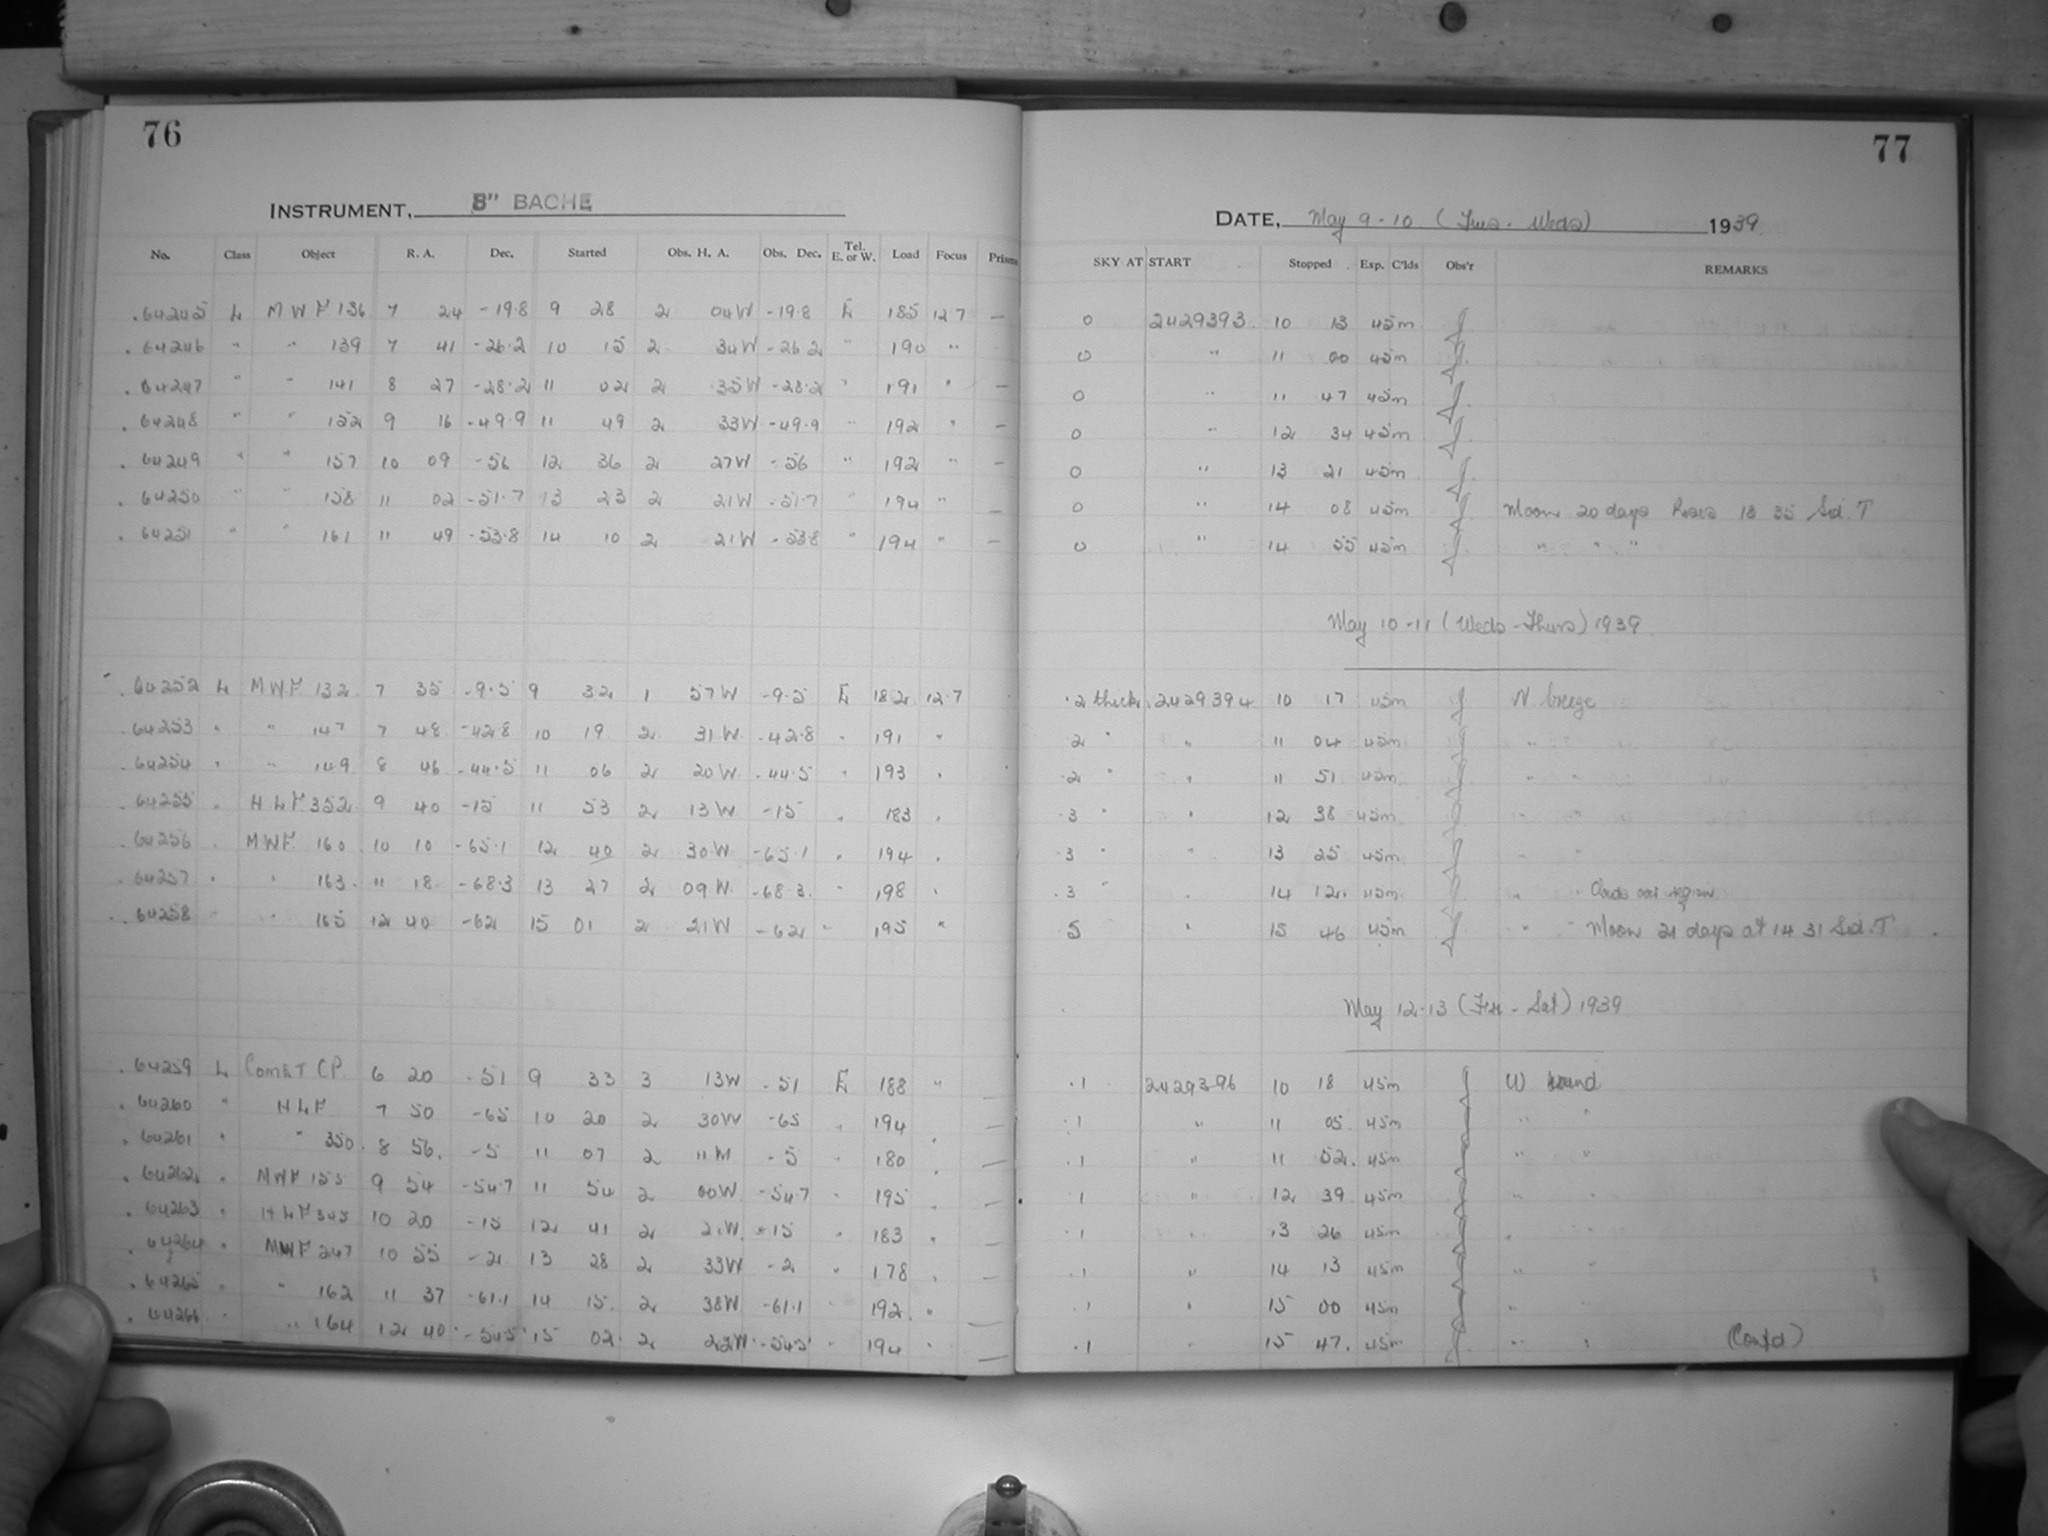 76
INSTRUMENT, 8" BACHE
No. Class Object R. A. Dec. Started Obs. H. A. Obs. Dec. Tel. E. or W. Load Focus Prisms
64245 L M W F 136 7 24 -19.8 9 28 2 04W -19.8 E 185 12.7 —
64246 " " 139 7 41 -26.2 10 15 2 34W -26.2 " 190 "
64247 " " 141 8 27 -28.2 11 02 2 35W -28.2 " 191 " —
64248 " " 152 9 16 -49.9 11 49 2 33W -49.9 " 192 " —
64249 " " 157 10 09 -56 12 36 2 27W -56 " 192 " —
64250 " " 158 11 02 -51.7 13 23 2 21W -51.7 " 194 "
64251 " " 161 11 49 -53.8 14 10 2 21W -53.8 " 194 " —
64252 L MWF 132 7 35 -9.5 9 32 1 57W -9.5 E 182 12.7
64253 " " 147 7 48 -42.8 10 19 2 31W -42.8 " 191 "
64254 " " 149 8 46 -44.5 11 06 2 20W -44.5 " 193 "
64255 " HLF 352 9 40 -15 11 53 2 13W -15 " 183 "
64256 " MWF 160 10 10 -65.1 12 40 2 30W -65.1 " 194 "
64257 " " 163 11 18 -68.3 13 27 2 09W -68.3 " 198 "
64258 " " 165 12 40 -62 15 01 2 21W -62 " 195 "
64259 L COMET CP 6 20 -51 9 33 3 13W -51 E 188 "
64260 " HLF 7 50 -65 10 20 2 30W -65 " 194 " —
64261 " " 350 8 56 -5 11 07 2 11W -5 " 180 " —
64262 " MWF 155 9 54 -54.7 11 54 2 00W -54.7 " 195 " —
64263 " HLF 345 10 20 -15 12 41 2 21W -15 " 183 " —
64264 " MWF 247 10 55 -2 13 28 2 33W -2 " 178 " —
64265 " " 162 11 37 -61.1 14 15 2 38W -61.1 " 192 " —
64266 " " 164 12 40 -54.5 15 02 2 22W -54.5 " 194 " —
77
DATE, May 9-10 (Tues. Weds) 1939
SKY AT START Stopped Exp. C'lds Obs'r REMARKS
0 2429393 10 13 45m
0 " 11 00 45m
0 " 11 47 45m
0 " 12 34 45m
0 " 13 21 45m
0 " 14 08 45m Moon 20 days Rises 13 35 Sid. T
0 " 14 55 45m " " "
May 10-11 (Weds-Thurs) 1939
.2 thick 2429394 10 17 45m N. breeze
.2 " " 11 04 45m " "
.2 " " 11 51 45m " "
.3 " " 12 38 45m " "
.3 " " 13 25 45m " "
.3 " " 14 12 45m " "
.5 " " 15 46 45m " " Moon 21 days at 14 31 Sid. T
May 12-13 (Fri - Sat) 1939
.1 2429396 10 18 45m W wind
.1 " 11 05 45m " "
.1 " 11 52 45m " "
.1 " 12 39 45m " "
.1 " 13 26 45m "
.1 " 14 13 45m " "
.1 " 15 00 45m " "
.1 " 15 47 45m " " (Cont'd)